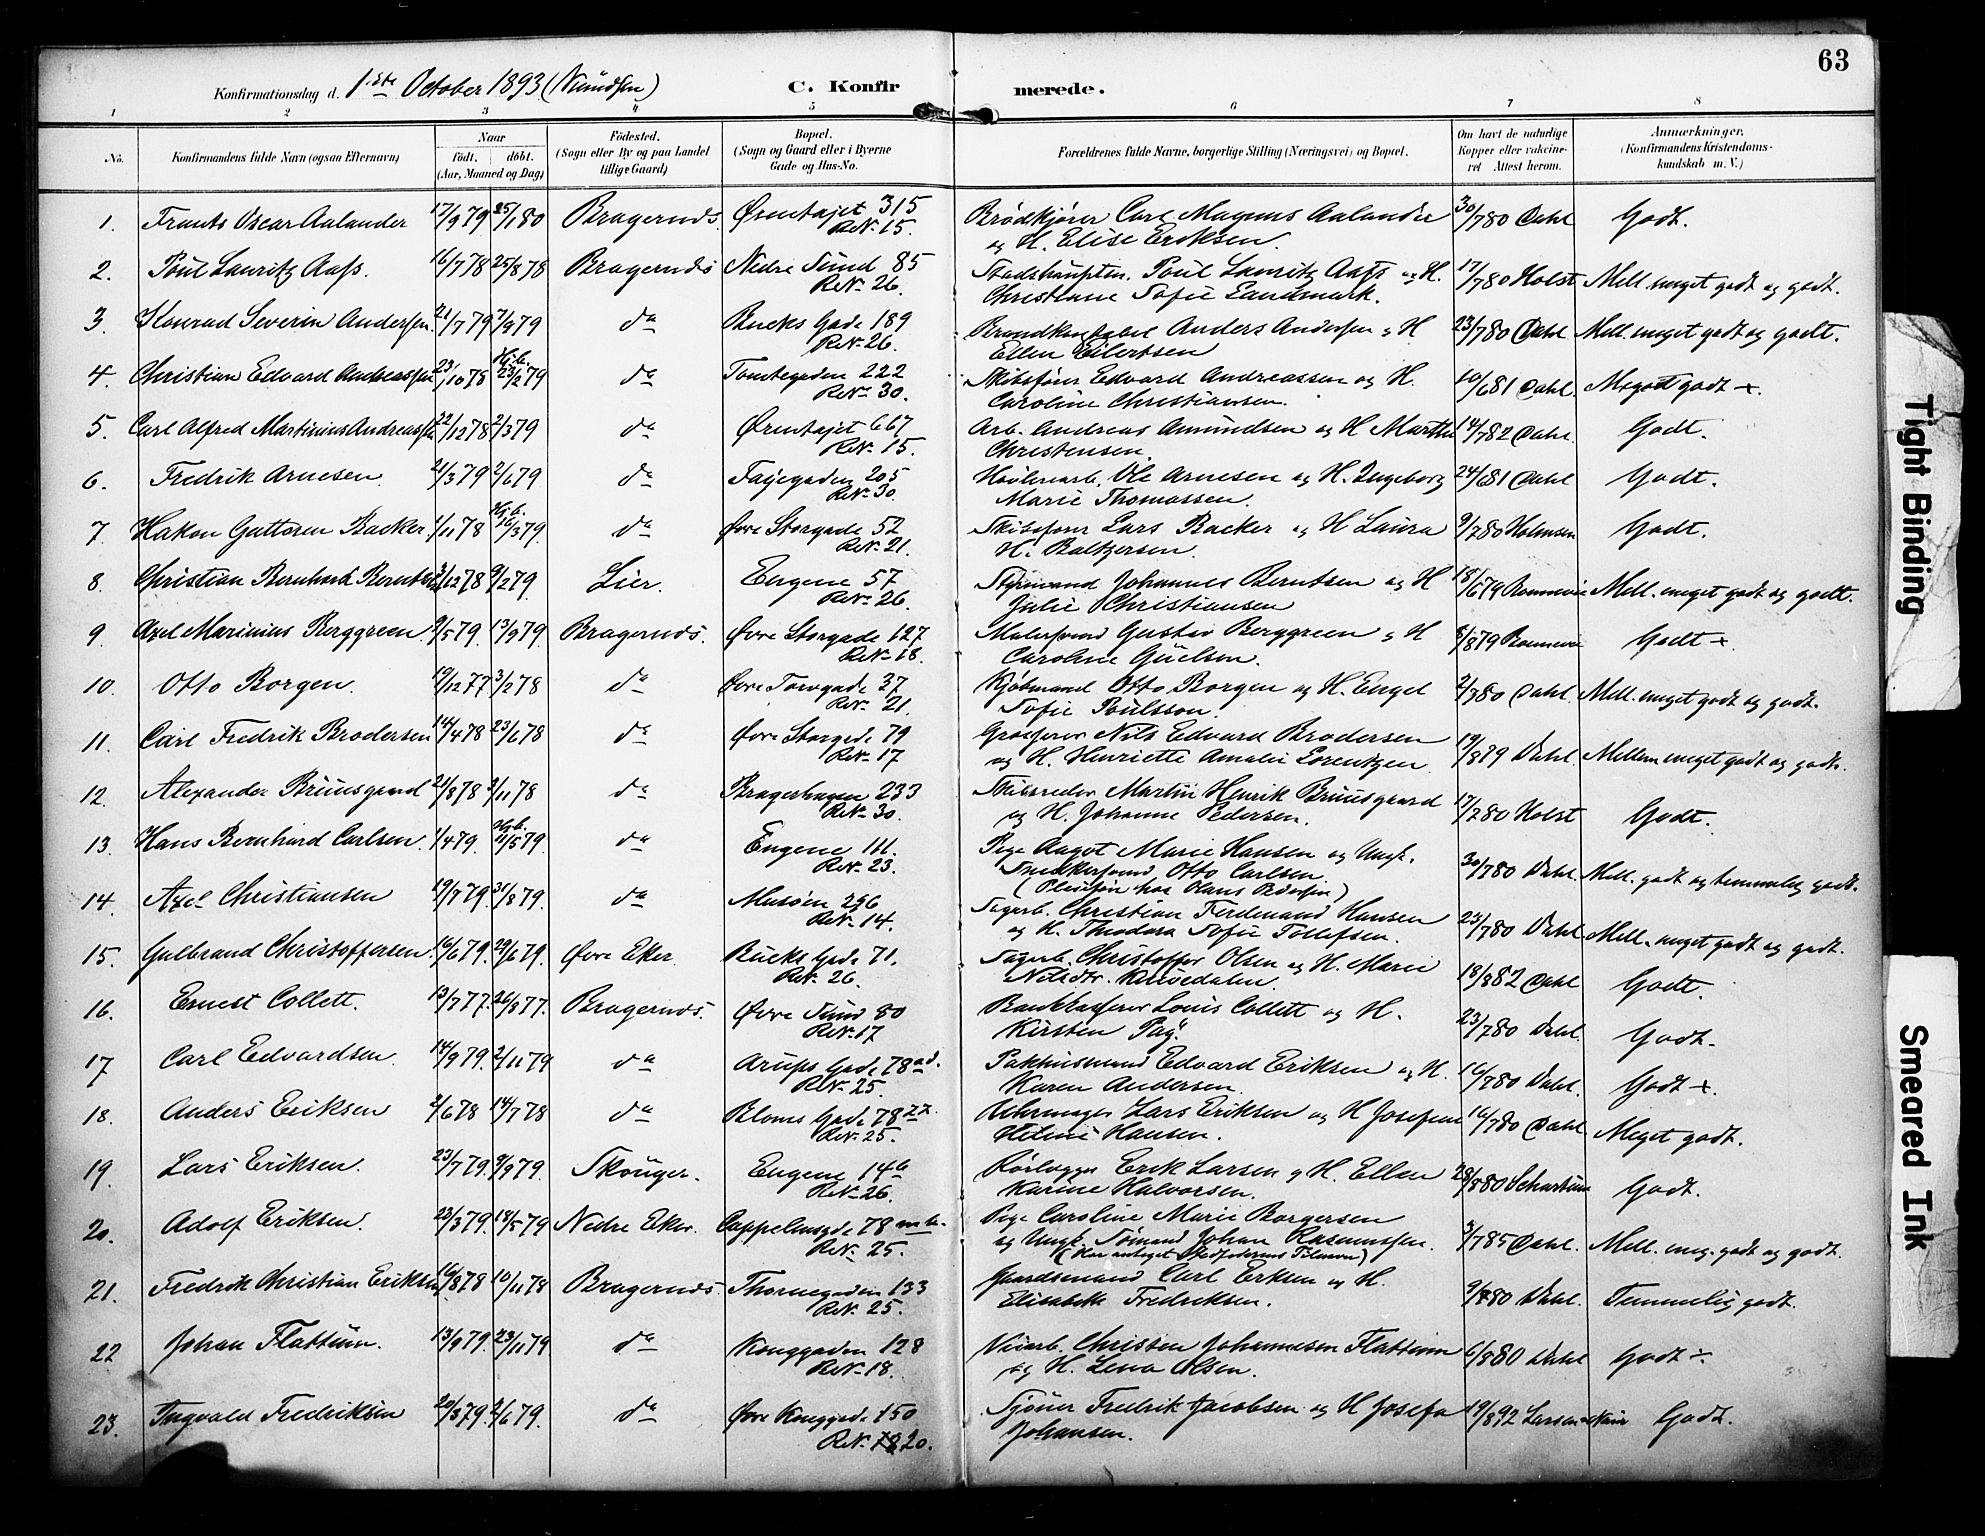 63
Konfirmationsdag d. 1ste October 1893 (Knudsen) C. Konfirmerede.
1 2 3 4 5 6 7 8
No. Konfirmandens fulde Navn (ogsaa Efternavn) Naar Födt. döbt. (Aar, Maaned og Dag) Födested. (Sogn eller By og paa Landet tillige Gaard) Bopæl. (Sogn og Gaard eller i Byerne Gade og Hus-No. Forældrenes fulde Navne, borgerlige Stilling (Næringsvei) og Bopæl. Om havt de naturlige Kopper eller vakcineret Attest herom. Anmærkninger. (Konfirmandens Kristendomskundskab m. V.)
1. Frants Oscar Aalander 17/9 79 25/1 80 Bragernæs. Örentajet 315 Brödkjörer Carl Magnus Aalander 30/7 80 Dahl Godt.
R.N. 15. og H. Elise Eriksen.
2. Poul Lauritz Aass. 16/7 78 25/8 78 Bragernæs Nedre Sund 85 Poul Lauritz Aass og H. 17/7 80 Holst Mell. meget godt og godt.
R.N. 26. Christiane Sofie Landmark.
3. Konrad Severin Anderssen. 21/7 79 7/9 79 da Bucks Gade 189 Anders Anderssen og H 23/7 80 Dahl Mell. meget godt og godt.
R.N. 26. Ellen Eilertsen
4. Christian Edvard Andreassen 23/10 78 Hj.b. 23/2 79 da Tomtegaden 222 Skibsförer Edvard Andreassen og H. 10/6 81 Dahl. Meget godt +.
R.N. 30. Caroline Christiansen.
5. Carl Alfred Martinius Andreassen 22/12 78 2/3 79 da Örentajet 667 Arb. Andreas Amundsen og H Marthe 14/7 82 Dahl. Godt.
R.N. 15. Christensen.
6. Fredrik Arnesen. 21/3 79 2/6 79 da Fayegaden 205 Hövleriarb. Ole Arnesen og H. Ingeborg 24/6 81 Dahl Godt.
R.N. 30. Marie Thomassen.
7 Hakon Guttoren Backer. 1/11 78 Hj.b. 16/3 79. da Övre Storgade 52 Skibsförer Lars Backer og H Laura 9/7 80 Holmsen Godt.
R.N. 21. H. Baltzersen.
8 Christian Bernhard Berntsen /12 78 9/2 79 Lier. Engene 57 Styrmand Johannes Berntsen og H 18/6 79 Mell. meget godt og godt.
R.N. 26. Julie Christiansen
9 Axel Marinius Berggreen /5 79. 13/9 79 Bragernæs. Övre Storgade 127 Gustav Berggreen og H 8/8 79 Godt +.
R.N. 18. Caroline
10. Otto Borgen. 19/12 77 3/2 78 da Övre Torvgade 37 Kjöbmand Otto Borgen og H. Engel 2/7 80 Dahl Mell. meget godt og godt.
R.N. 21. Sofie Poulsson.
11. Carl Fredrik Brodersen 14/4 78 23/6 78 da Övre Storgade 79 Grosserer Nils Edvard Brodersen 19/8 79 Dahl. Mellem meget godt og godt.
R.N. 17 og H. Henriette Amalie Lorentzen
12. Alexander Bruusgaard 21/8 78 3/11 78 da Bragerhagen 233 Skibsreder Martin Henrik Bruusgaard 17/2 80 Holst Godt.
R.N. 30. og H. Johanne Pedersen.
13. Hans Bernhard Carlsen. 1/4 79. Hj.b. 11/5 79. da Engene 111. Pige Aagot Marie Hansen og Ungk. 30/7 80 Dahl. Mell. godt og temmelig godt.
R.N. 23. Snedkersvend Otto Carlsen.
(Pleiesön hos Hans Pederssen)
14. Axel Christiansen 19/7 79. 31/8 79. da Musöen 296 Sagarb. Christian Ferdinand Hansen 23/7 80 Dahl Mell. meget godt og godt.
R.N. 14. og H. Theodora Sofie Tollefsen.
15. Gulbrand Christoffersen. 16/6 79. 29/6 79. Övre Eker. Bucks Gade 71. Sagarb. Christoffer Olsen og H. Marie 18/8 82 Dahl Godt.
R.N. 26. Nilsdtr.
16. Ernest Collett. 13/7 77. 26/8 77. Bragernæs. Övre Sund 80 Bankkasserer Louis Collett og H. 23/7 80 Dahl. Godt.
R.N. 17 Kirsten Pay.
17 Carl Edvardsen. 14/9 79. 2/11 79 da Arups Gade 78 ad. Pakhusmand Edvard Eriksen og H. 16/7 80 Dahl. Godt +.
R.N. 25. Karen Andersen.
18. Anders Eriksen 2/6 78 14/7 78 da Bloms Gade 78 Uhrmager Lars Eriksen og H Josefine 16/7 80 Dahl Meget godt.
R.N. 25. Helene Hansen.
19 Lars Eriksen. 23/7 79. 9/9 79. Skouger. Engene 146 Erik Larsen og H. Ellen 28/8 80 Schartum Godt.
R.N. 26. Karine Halvorsen.
20. Adolf Eriksen. 22/3 79. 18/5 79 Nedre Eker. Cappelensgade 78 Pige Caroline Marie Borgersen 3/7 85 Dahl. Mell. meg. godt og godt.
R.N. 25. og Ungk. Sömand Johan Rasmussen.
(Har antaget Stedfaderens Tilnavn)
21. Fredrik Christian Eriksen 16/8 78 10/11 78 Bragernæs. Thornegaden 133 Gaardsmand Carl Eriksen og H. 9/8 80 Dahl. Temmelig godt.
R.N. 25. Elisabeth Fredriksen.
22 Johan Flattum. 13/9 79. 23/11 79 da Konggaden 128 Christen Johannesen Flattum 6/8 80 Dahl Godt
R.N. 18. og H. Lena Olsen.
23. Ingvald Fredriksen 20/3 79. 2/6 79. da Övre Konggade 150 Fredrik Jacobsen og H Josefa 19/8 92 Godt.
R.N. 20. Johansen.
Tight Binding
Smeared Ink